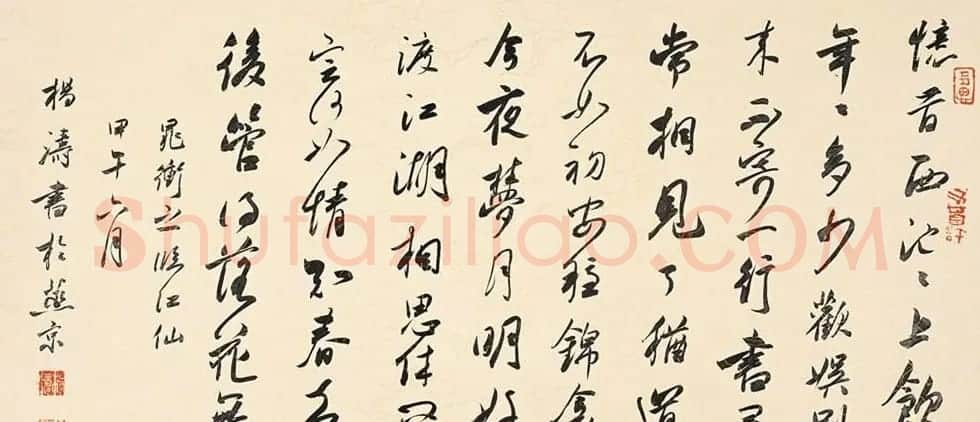 憶昔西池〻上飲
年〻多少歡娛別
來不寄一行書尋
常相見了猶道
不如初安穩錦屏
今夜夢月明好
渡江湖相思休問
定何如情知春去
後管得落花無
晁衝之臨江仙
甲午六月
楊濤書於燕京
Shufaziliao.COM